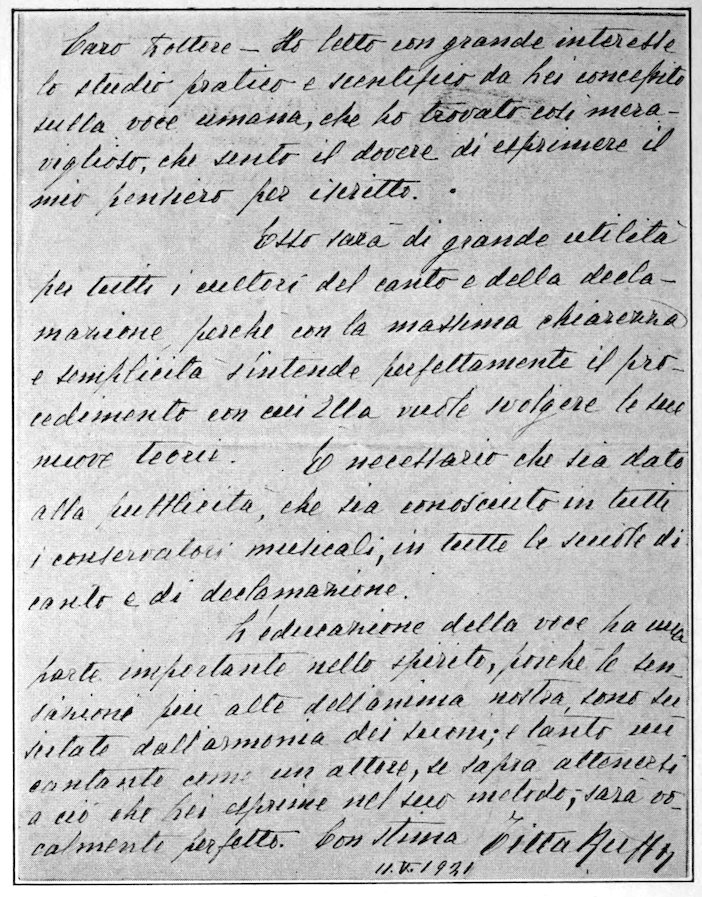 Caro Dottore – Ho letto con grande interesse
lo studio pratico e scientifico da Lei concepito
sulla voce umana, che ho trovato così mera-
viglioso, che sento il dovere di esprimere il
mio pensiero per iscritto.
Esso sarà di grande utilità
per tutti i cultori del canto e della decla-
mazione, perchè con la massima chiarezza
e semplicità s'intende perfettamente il pro-
cedimento con cui Ella vuole svolgere le sue
nuove teorie. È necessario che sia dato
alla pubblicità, che sia conosciuto in tutti
i conservatori musicali, in tutte le scuole di
canto e di declamazione.
L'educazione della voce ha una
parte importante nello spirito, poichè le sen-
sazioni più alte dell'anima nostra, sono su
scitate dall'armonia dei suoni; e tanto un
cantante come un attore, se saprà attenersi
a ciò che Lei esprime nel suo metodo, sarà vo-
calmente perfetto. Con stima Titta Ruffo
11.V.1921